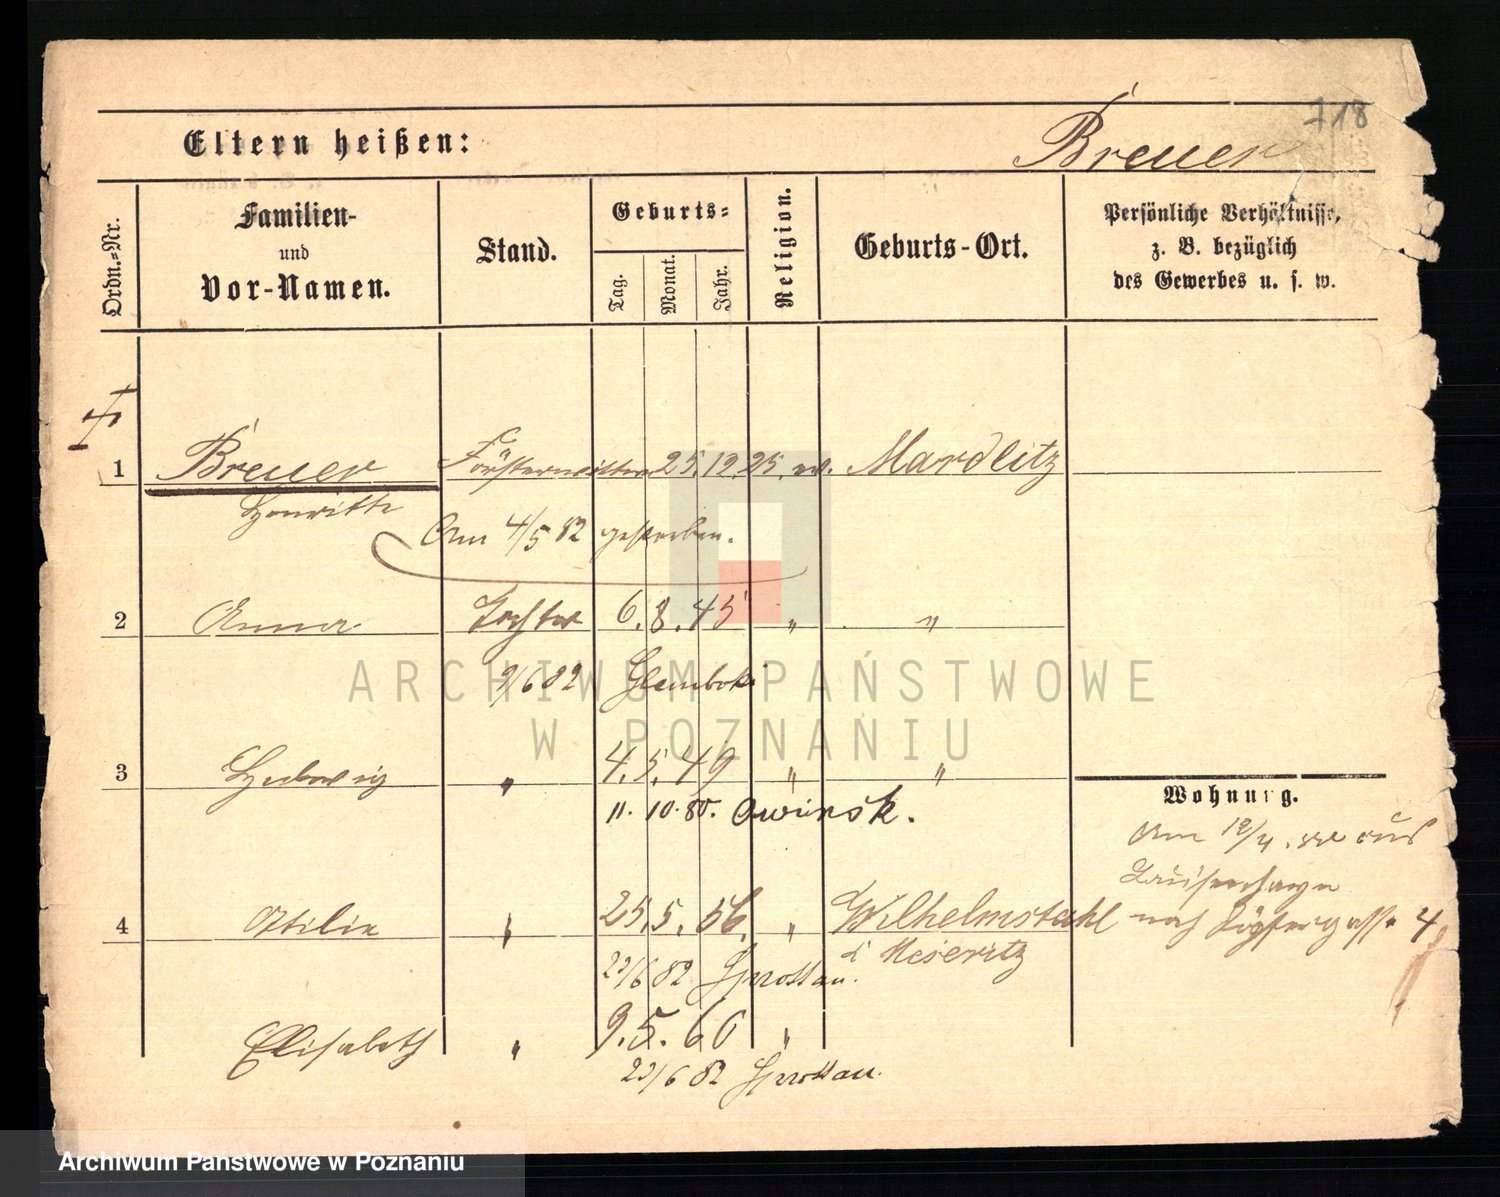 718
Eltern heißen:
Breuer
Ordn.-Nr.
Familien-
und
Vor-Namen.
Stand.
Geburts-
Tag.
Monat.
Jahr.
Religion.
Geburts-Ort.
Persönliche Verhältnisse,
z. B. bezüglich
des Gewerbes u. s. w.
1 Breuer Försterwittwe 25. 12. 25. ev. Mardlitz
Am 4/5 82 gestorben.
2 Anna Tochter 6. 8. 45 " "
9/6 82 Glemboki
3 Hedwig " 4. 5. 49 " "
11. 10. 80. Owinsk.
Wohnung.
Am 12/4. aus
4 Otilie " 25. 5. 56. " Wilhelmstahl
nach Töpfergasse 4
Meseritz
23/6 82 Sprottau.
Elisabeth " 9. 5. 60 "
23/6 82 Sprottau.
ARCHIWUM PAŃSTWOWE
W POZNANIU
Archiwum Państwowe w Poznaniu